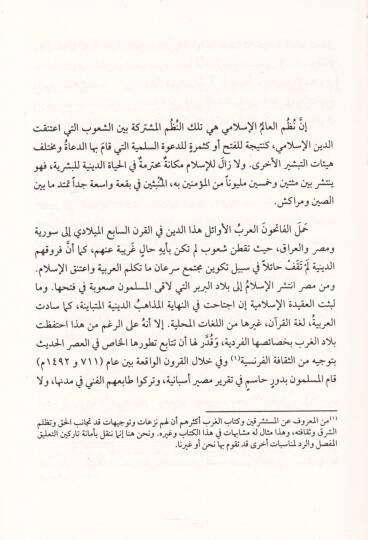 إنَّ نُظُم العالم الإسلامي هي تلك النُظُم المشتركة بين الشعوب التي اعتنقت
الدين الإسلامي، كنتيجة للفتح أو كثمرةٍ للدعوة السلمية التي قامَ بها الدعاةُ ومختلف
هيئات التبشير الأخرى. ولا زالَ للإسلام مكانةٌ محترمةٌ في الحياة الدينية للبشرية، فهو
ينتشر بين مئتين وخمسين مليوناً من المؤمنين به، المُنْبَثين في بقعة واسعة جداً تمتد ما بين
الصين ومراكش.
حَمَلَ الفاتحونَ العربُ الأوائل هذا الدين في القرن السابع الميلادي إلى سورية
ومصر والعراق، حيث تقطن شعوب لم تكن بأيه حالٍ غَريبة عنهم، كما أنَّ فروقهم
الدينية لَمْ تَقِفْ حائلاً في سبيل تكوين مجتمع سرعان ما تكلم العربية واعتنق الإسلام.
ومن مصر انتشر الإسلامُ إلى بلاد البربر التي لاقى المسلمون صعوبة في فتحها. وما
لبثت العقيدة الإسلامية إن اجتاحت في النهاية المذاهبُ الدينية المتباينة، كما سادت
العربيةُ، لغة القرآن، غيرها من اللغات المحلية. إلا أنهُ على الرغم من هذا احتفظت
بلاد الغرب بخصائصها الفردية، وَقُدِّر لها أن تتابع تطورها الخاص في العصر الحديث
بتوجيه من الثقافة الفرنسية(١) وفي خلال القرون الواقعة بين عام (٧١١ و ١٤٩٢م)
قام المسلمون بدورٍ حاسمٍ في تقرير مصير أسبانية، وتركوا طابعهم الفني في مدنها، ولا
(١) من المعروف عن المستشرقين وكتاب الغرب أكثرهم أن لهم نزعات وتوجيهات قد تجانب الحق وتظلم
الشرق وثقافته، وهذا مثال له مشابهات في هذا الكتاب وغيره. ونحن هنا إنما ننقل بأمانة تاركين التعليق
المفصل والرد لمناسبات أخرى قد تقوم بها نحن أو غيرنا.